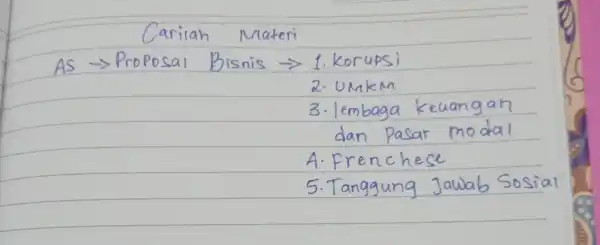 Cariiah Materi
AS → Proposal Bisnis ⇒ 1. Korupsi
2. UMKM
3. lembaga keuangan
dan Pasar modal
A. Frenchese
5. Tanggung Jawab Sosial